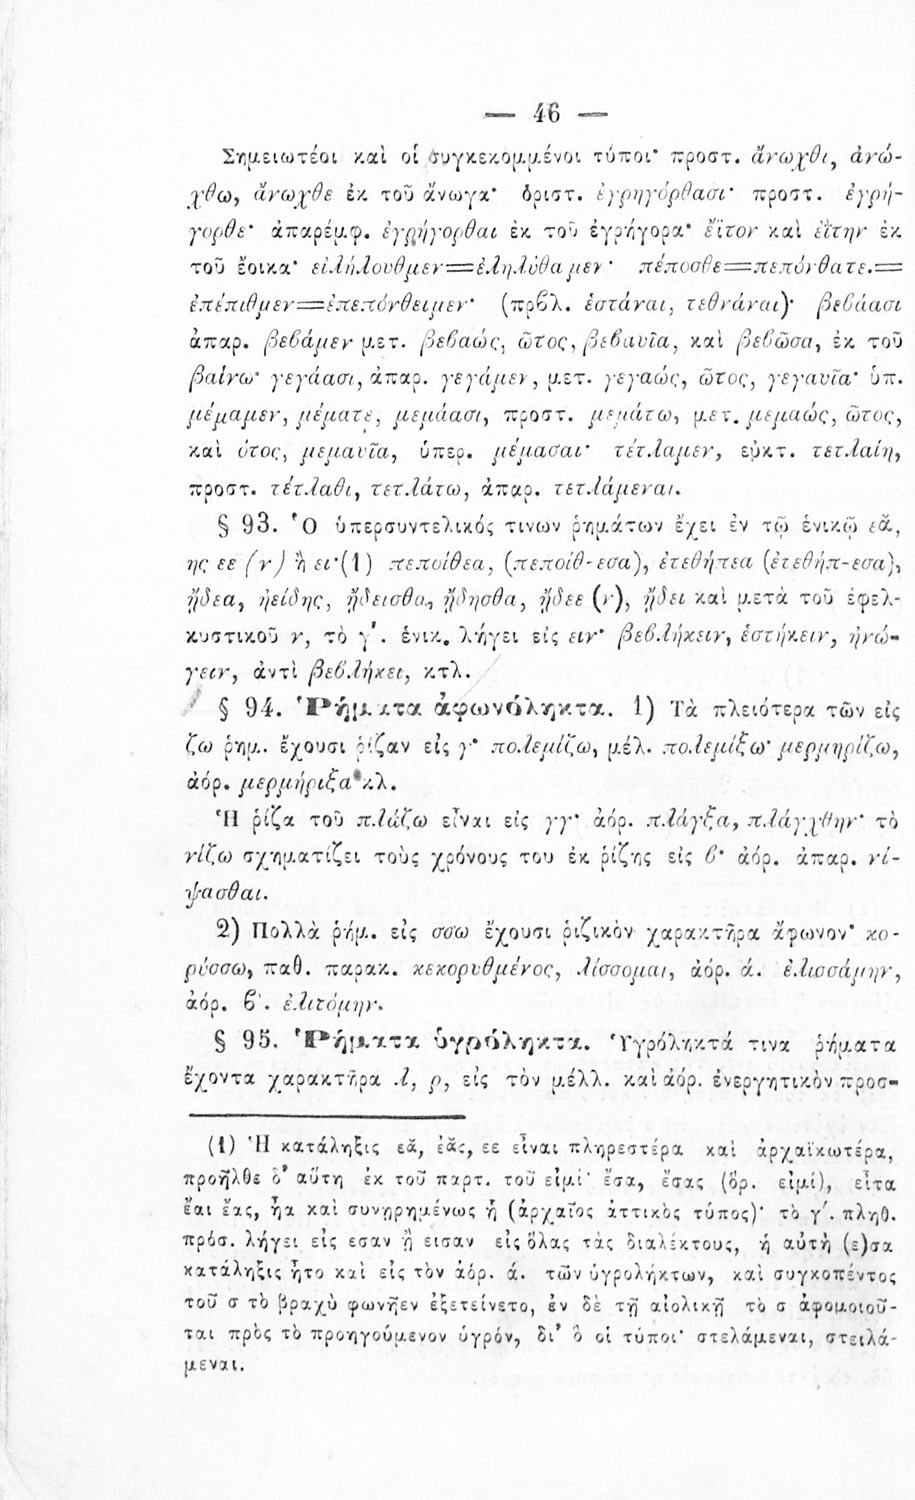 — 46 —
Σημειωτέοι καὶ οἱ συγκεκομμένοι τύποι· προστ. ἄνωχθι, ἀνώ-
χθω, ἄνωχθε ἐκ τοῦ ἄνωγα· ὁριστ. ἐγρηγόρθασι· προστ. ἐγρή-
γορθε· ἀπαρέμφ. ἐγρήγορθαι ἐκ τοῦ ἐγρήγορα· ἔϊτον καὶ ἐΐτην ἐκ
τοῦ ἔοικα· εἰλήλουθμεν=ἐληλύθαμεν· πέποσθε=πεπόνθατε.=
ἐπέπιθμεν=ἐπεπόνθειμεν· (πρβλ. ἑστάναι, τεθνάναι)· βεβάασι
ἀπαρ. βεβάμεν μετ. βεβαώς, ῶτος, βεβαυῖα, καὶ βεβῶσα, ἐκ τοῦ
βαίνω· γεγάασι, ἀπαρ. γεγάμεν, μετ. γεγαώς, ῶτος, γεγαυῖα· ὑπ.
μέμαμεν, μέματε, μεμάασι, προστ. μεμάτω, μετ. μεμαώς, ῶτος,
καὶ ότος, μεμαυῖα, ὑπερ. μέμασαι· τέτλαμεν, εὐκτ. τετλαίη,
προστ. τέτλαθι, τετλάτω, ἀπαρ. τετλάμεναι.
§ 93. Ὁ ὑπερσυντελικός τινων ῥημάτων ἔχει ἐν τῷ ἑνικῷ εᾶ,
ης εε (ν) ἢ ει·(1) πεποίθεα, (πεποίθ-εσα), ἐτεθήπεα (ἐτεθήπ-εσα),
ᾔδεα, ἠείδης, ᾔδεισθα, ᾔδησθα, ᾔδεε (ν), ᾔδει καὶ μετὰ τοῦ ἐφελ-
κυστικοῦ ν, τὸ γ΄. ἑνικ. λήγει εἰς ειν· βεβλήκειν, ἑστήκειν, ἠνώ-
γειν, ἀντὶ βεβλήκει, κτλ.
§ 94. Ῥήματα ἀφωνόληκτα. 1) Τὰ πλειότερα τῶν εἰς
ζω ῥημ. ἔχουσι ῥίζαν εἰς γ· πολεμίζω, μέλ. πολεμίξω· μερμηρίζω,
ἀόρ. μερμήριξα κλ.
Ἡ ῥίζα τοῦ πλάζω εἶναι εἰς γγ· ἀόρ. πλάγξα, πλάγχθην· τὸ
νίζω σχηματίζει τοὺς χρόνους του ἐκ ῥίζης εἰς β· ἀόρ. ἀπαρ. νί-
ψασθαι.
2) Πολλὰ ῥήμ. εἰς σσω ἔχουσι ῥιζικὸν χαρακτῆρα ἄφωνον· κο-
ρύσσω, παθ. παρακ. κεκορυθμένος, λίσσομαι, ἀόρ. ά. ἐλισσάμην,
ἀόρ. β΄. ἐλιτόμην.
§ 95. Ῥήματα ὑγρόληκτα. Ὑγρόληκτά τινα ῥήματα
ἔχοντα χαρακτῆρα λ, ρ, εἰς τὸν μέλλ. καὶ ἀόρ. ἐνεργητικὸν προσ-
(1) Ἡ κατάληξις εᾶ, ἐᾶς, εε εἶναι πληρεστέρα καὶ ἀρχαϊκωτέρα,
προῆλθε δ' αὕτη ἐκ τοῦ παρτ. τοῦ εἰμί· ἔσα, ἔσας (ὅρ. εἰμί), εἶτα
ἔαι ἔας, ἦα καὶ συνῃρημένως ἦ (ἀρχαῖος ἀττικὸς τύπος)· τὸ γ΄. πληθ.
πρόσ. λήγει εἰς εσαν ἢ εισαν εἰς ὅλας τὰς διαλέκτους, ἡ αὐτὴ (ε)σα
κατάληξις ἦτο καὶ εἰς τὸν ἀόρ. ά. τῶν ὑγρολήκτων, καὶ συγκοπέντος
τοῦ σ τὸ βραχὺ φωνῆεν ἐξετείνετο, ἐν δὲ τῇ αἰολικῇ τὸ σ ἀφομοιοῦ-
ται πρὸς τὸ προηγούμενον ὑγρόν, δι' ὃ οἱ τύποι· στελάμεναι, στειλά-
μεναι.